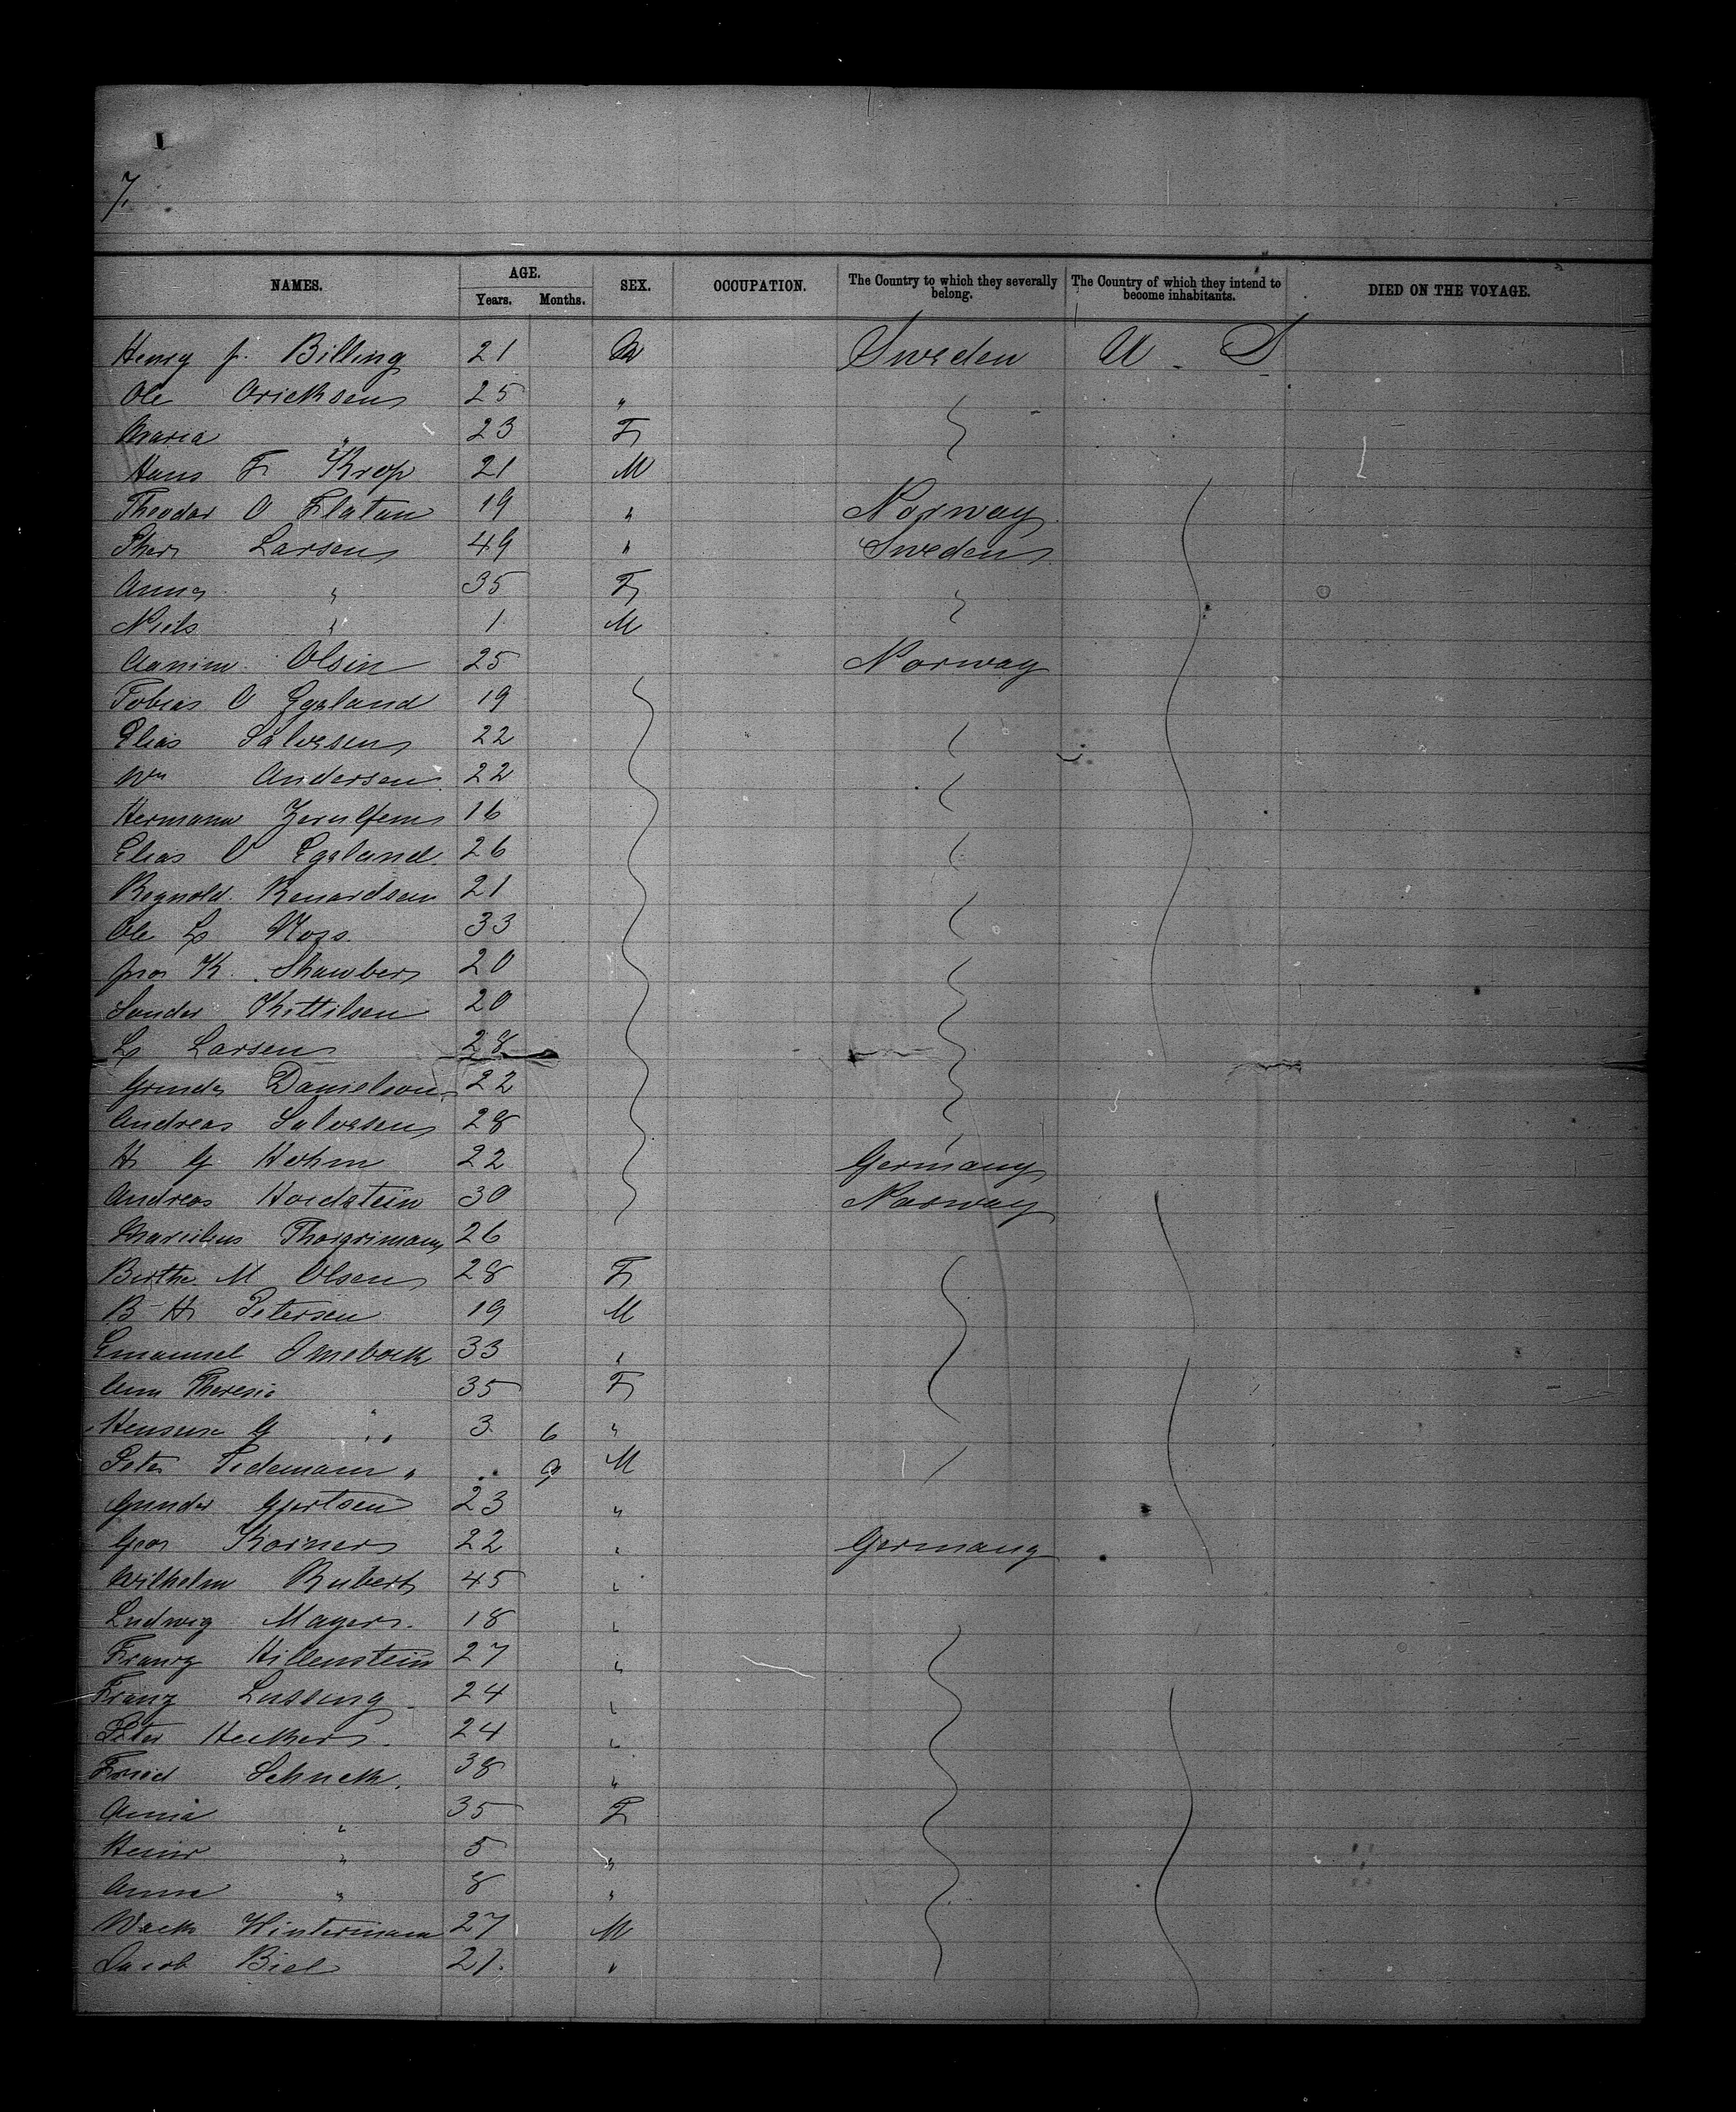 7.
NAMES. AGE. Years. Months. SEX. OCCUPATION. The Country to which they severally belong. The Country of which they intend to become inhabitants. DIED ON THE VOYAGE.
Henry J. Billing 21 M Sweden U. S
Ole Oricksen 25 "
Maria " 23 F
Hans F Krop 21 M
Theodor O Flatan 19 " Norway
Larsen 49 " Sweden
Anna " 35 F
Niels " 1 M
Olsin 25 Norway
Tobias O Egeland 19
Elias Salvesen 22
Wm Andersen 22
Hermann 16
Elias O Egeland 26
Regnold Renardsen 21
Ole L Moss 33
K. 20
Sander Kittilsen 20
L Larsen 28
Danielson 22
Andreas Salvesen 28
H G Hohm 22 Germany
Andreas Hordstein 30 Norway
26
Berthe M Olsen 28 F
B H Petersen 19 M
Emanuel 33 "
Ann Theresia 35 F
G " 3 6 "
Peter Tidemann " .. 9 M
Gunder Gjertsen 23 "
Geo Korner 22 " Germany
Wilhelm Rubert 45 "
Ludwig Mayer. 18 "
Franz Hillenstein 27 "
Franz Lussing 24 "
Peter 24 "
Fried Schuck. 38 "
Anna " 35 F
" 5 "
Anna " 8 "
Wintermann 27 M
Jacob Biel 21. "